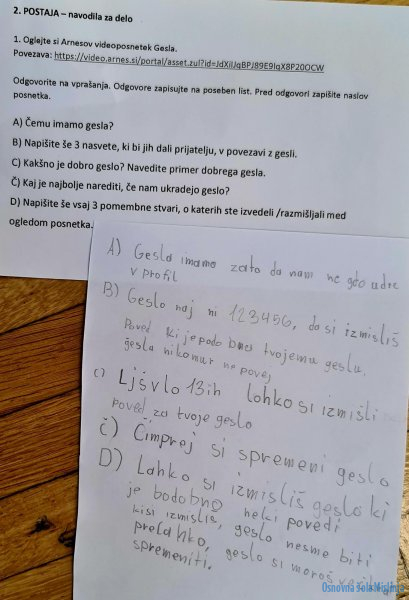 2. POSTAJA – navodila za delo
1. Oglejte si Arnesov videoposnetek Gesla.
Povezava: https://video.arnes.si/portal/asset.zul?id=JdXiIJqBPJ89E9IqX8P20OCW
Odgovorite na vprašanja. Odgovore zapisujte na poseben list. Pred odgovori zapišite naslov
posnetka.
A) Čemu imamo gesla?
B) Napišite še 3 nasvete, ki bi jih dali prijatelju, v povezavi z gesli.
C) Kakšno je dobro geslo? Navedite primer dobrega gesla.
Č) Kaj je najbolje narediti, če nam ukradejo geslo?
D) Napišite še vsaj 3 pomembne stvari, o katerih ste izvedeli /razmišljali med
ogledom posnetka.
A) Gesla imamo zato da nam ne gdo udre
v profil
B) Geslo naj ni 123456, da si izmisliš
Poved ki je podobna tvojemu geslu,
gesla nikomur ne povej
C) Ljšvlo 13ih lohko si izmišli
poved za tvoje geslo
Č) Čimprej si spremeni geslo
D) Lahko si izmisliš geslo ki
je bodobno neki povedi
ki si izmisliš, geslo nesme biti
prelahko, geslo si moroš
spremeniti.
Osnovna šola Mislinja